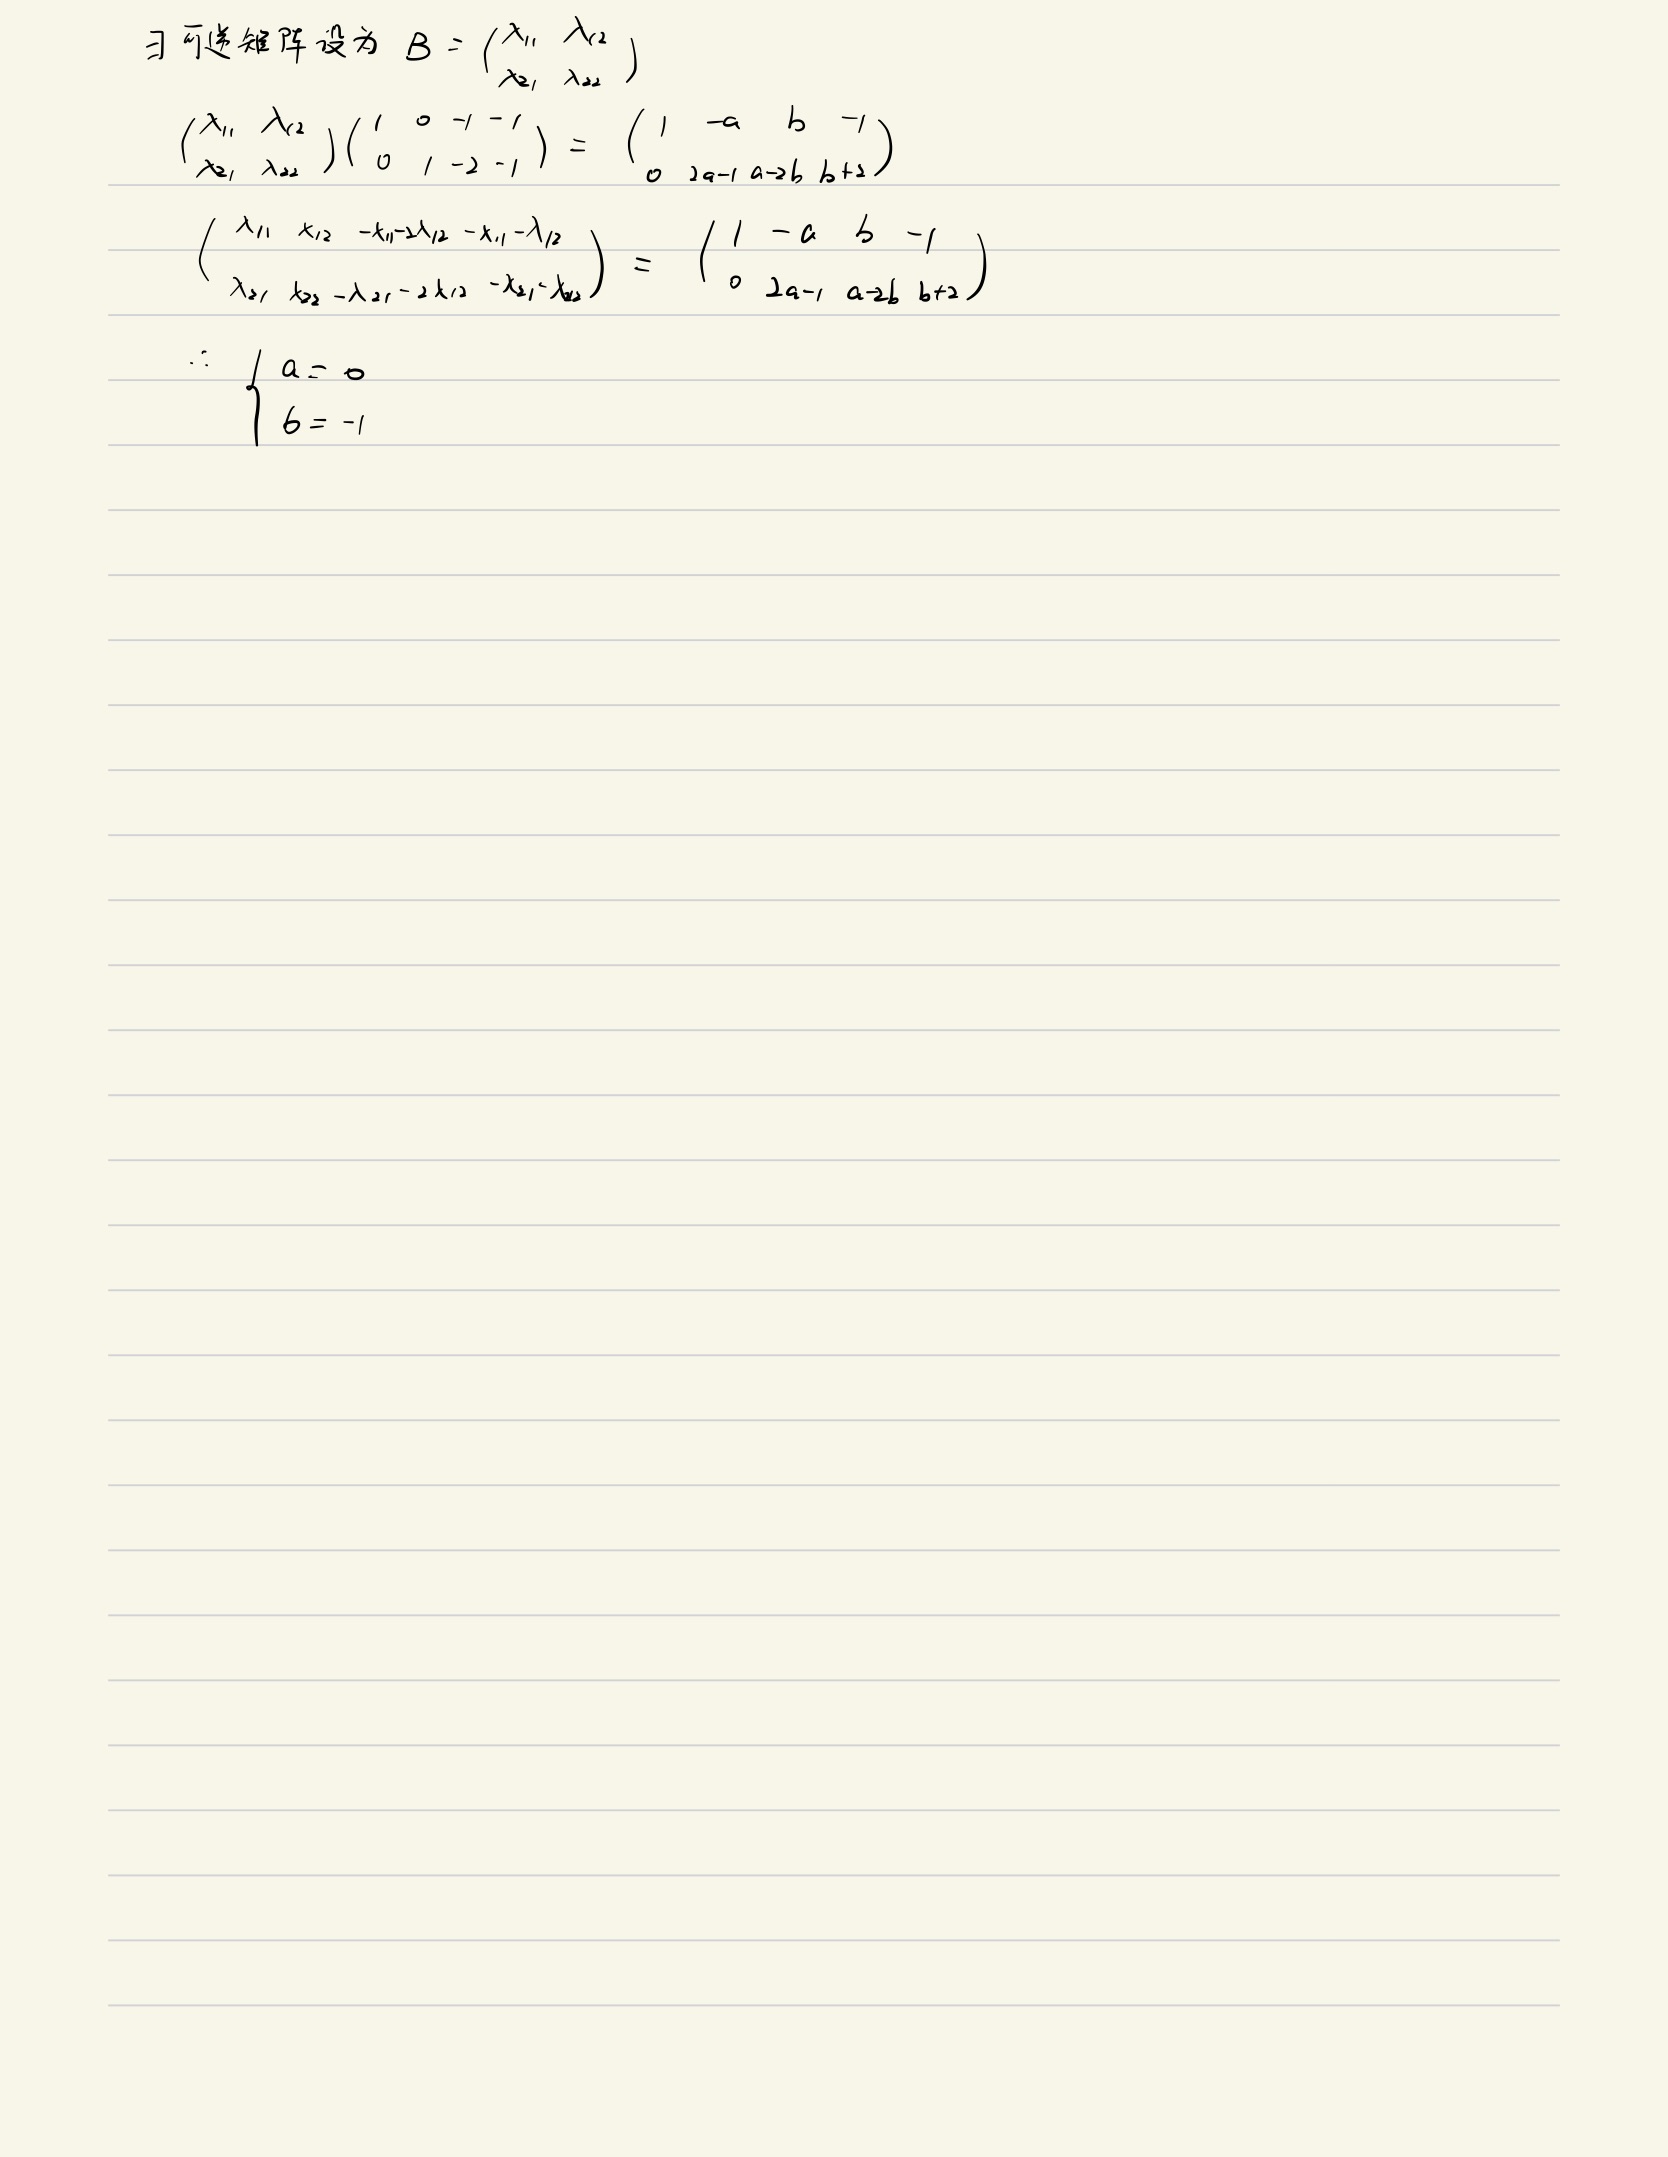 ∃ 可逆矩阵设为 B = (x₁₁ x₁₂ / x₂₁ x₂₂)
(x₁₁ x₁₂ / x₂₁ x₂₂)(1 0 -1 -1 / 0 1 -2 -1) = (1 -a b -1 / 0 2a-1 a-2b b+2)
(x₁₁ x₁₂ -x₁₁-2x₁₂ -x₁₁-x₁₂ / x₂₁ x₂₂ -x₂₁-2x₁₂ -x₂₁-x₂₂) = (1 -a b -1 / 0 2a-1 a-2b b+2)
∴ { a = 0
b = -1